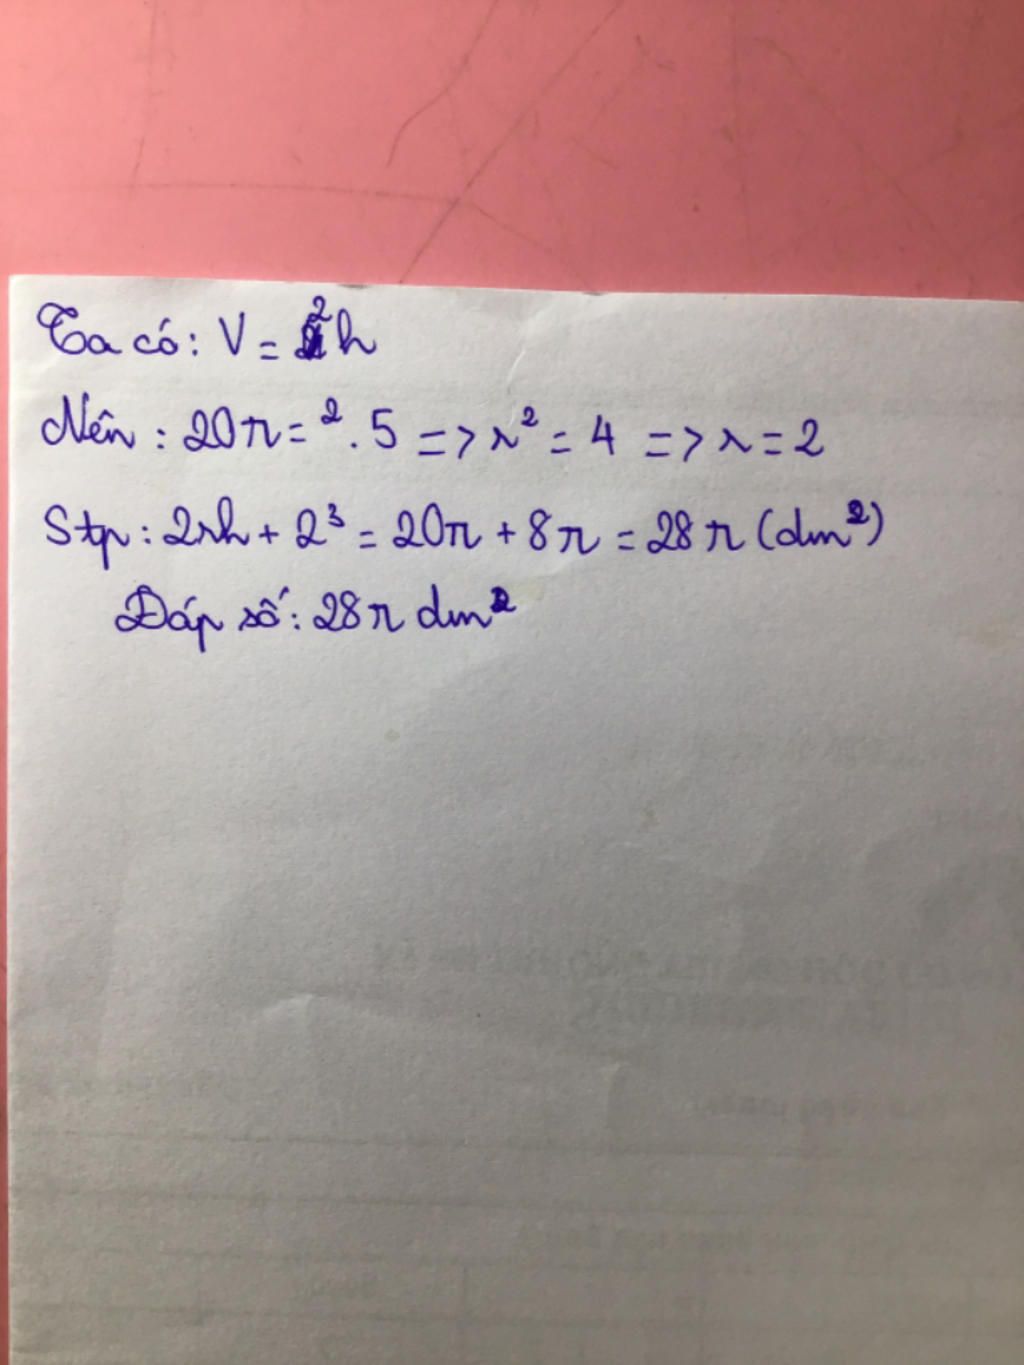 Ta có: V = ²h
Nên : 20π = ² . 5 => r² = 4 => r = 2
Stp : 2rh + 2³ = 20π + 8π = 28π (dm²)
Đáp số: 28π dm²